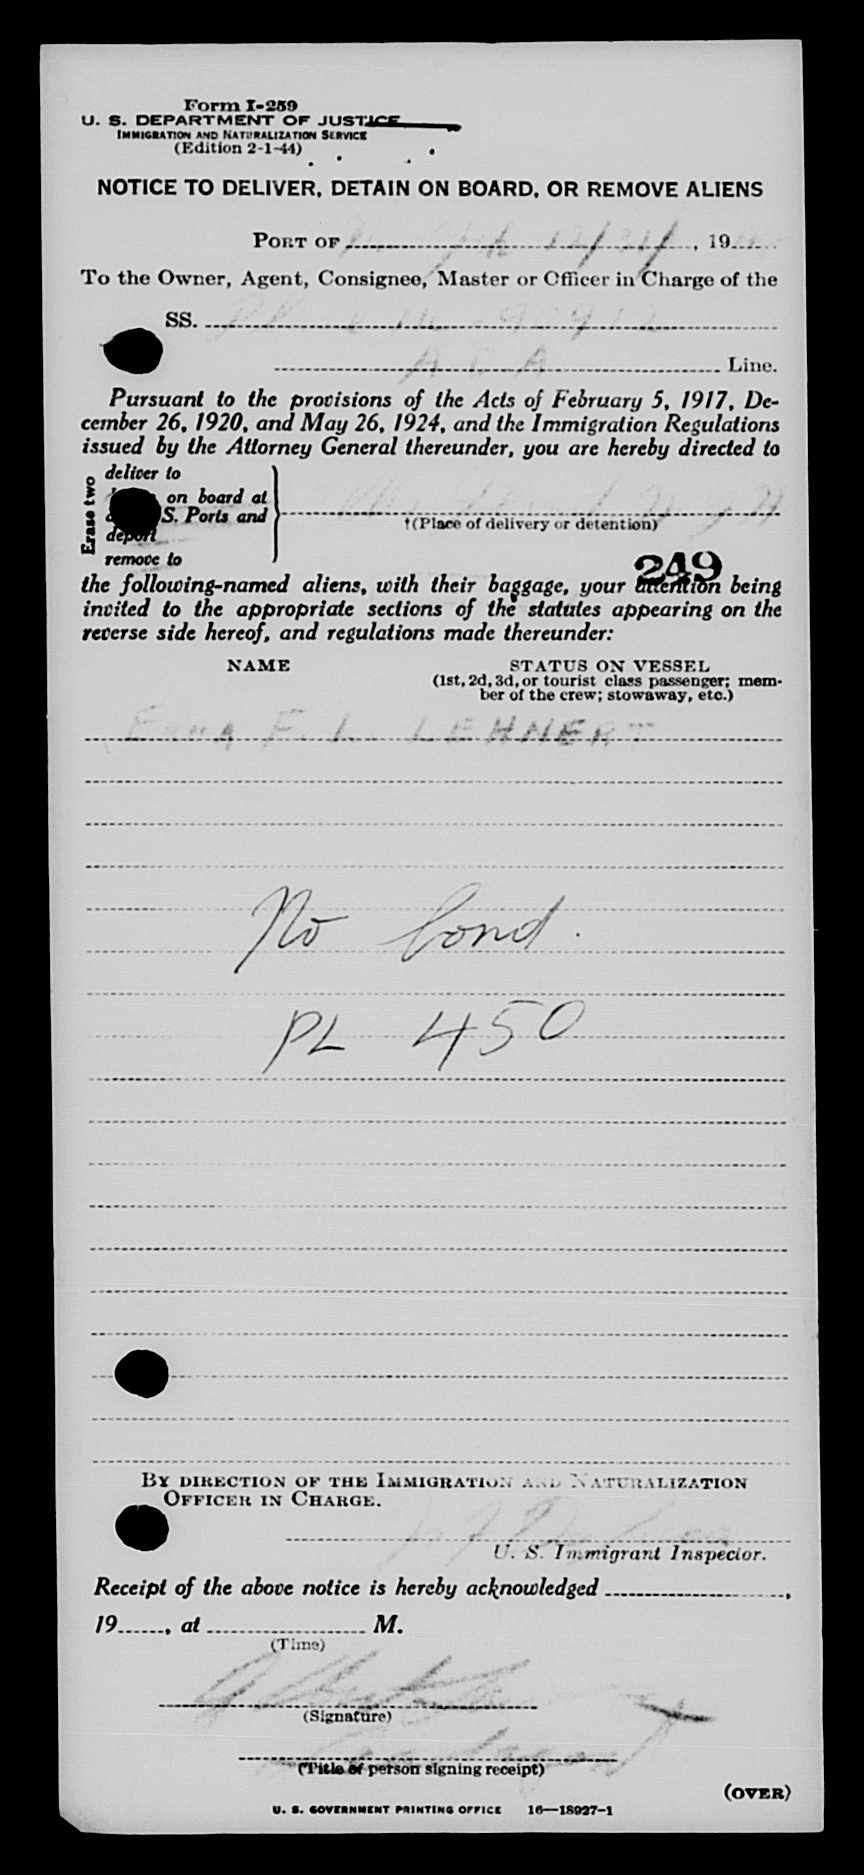 Form I-259
U. S. DEPARTMENT OF JUSTICE
IMMIGRATION AND NATURALIZATION SERVICE
(Edition 2-1-44)
NOTICE TO DELIVER, DETAIN ON BOARD, OR REMOVE ALIENS
PORT OF , 19
To the Owner, Agent, Consignee, Master or Officer in Charge of the
SS.
A O A Line.
Pursuant to the provisions of the Acts of February 5, 1917, De-
cember 26, 1920, and May 26, 1924, and the Immigration Regulations
issued by the Attorney General thereunder, you are hereby directed to
Erase two
deliver to
on board at
S. Ports and
deport
remove to
†(Place of delivery or detention)
249
the following-named aliens, with their baggage, your attention being
invited to the appropriate sections of the statutes appearing on the
reverse side hereof, and regulations made thereunder:
NAME STATUS ON VESSEL
(1st, 2d, 3d, or tourist class passenger; mem-
ber of the crew; stowaway, etc.)
F. L. LEHNERT
No bond.
PL 450
BY DIRECTION OF THE IMMIGRATION AND NATURALIZATION
OFFICER IN CHARGE.
U. S. Immigrant Inspector.
Receipt of the above notice is hereby acknowledged ,
19 , at M.
(Time)
(Signature)
(Title of person signing receipt)
(OVER)
U. S. GOVERNMENT PRINTING OFFICE 16—18927-1